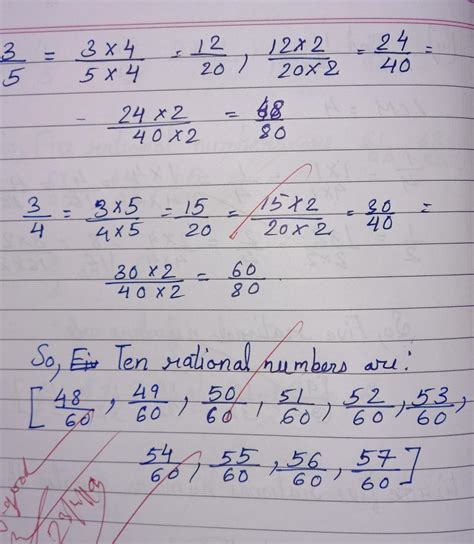 3/5 = 3×4/5×4 = 12/20, 12×2/20×2 = 24/40 =
- 24×2/40×2 = 48/80
3/4 = 3×5/4×5 = 15/20 = 15×2/20×2 = 30/40 =
30×2/40×2 = 60/80
So, Ten rational numbers are:
[48/60, 49/60, 50/60, 51/60, 52/60, 53/60,
54/60, 55/60, 56/60, 57/60]
good